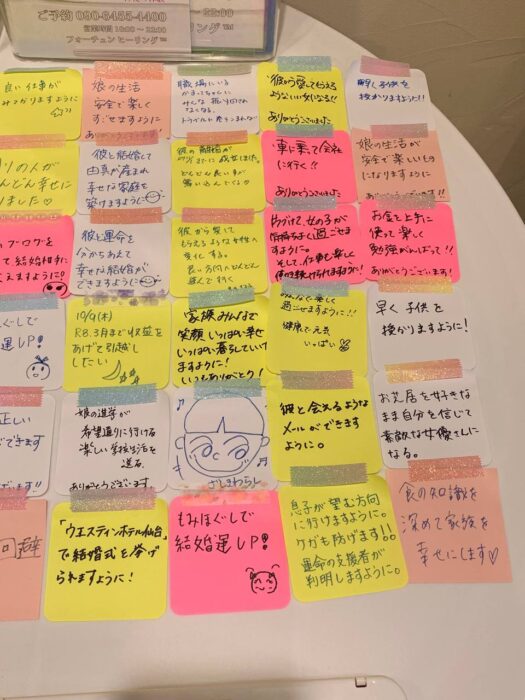 ご予約 090-6455-4400
フォーチュン ヒーリング
良い仕事が
みつかりますように
娘の生活
安全で楽しく
すごせますように
ありがとうございます
職場にいる
みんな
彼から愛してもらえる
ような いい女になる!!
ありがとうございました
子供を
授かりますように!!
りの人が
どんどん幸せに
りました
彼と結婚して
由真が産まれ
幸せな家庭を
築けますように
彼の離婚が
成立しました。
どんどん良い事が
車に乗って会社
に行く!?
ありがとうございました
娘の生活が
安全で楽しいもの
になりますように
ありがとうございます!!
ブログを
て結婚相手に
えますように!
彼と運命を
分かちあえて
幸せな結婚が
できますように
彼から愛して
もらえるような女性に
変化する。
良い方向にどんどん
進んで行く
女の子が
気持ちよく過ごせま
すように
そして、仕事も楽しく
続けられますように!
お金を上手に
使って楽しく
勉強がんばって!!
ありがとうございます!
ほぐしで
運UP!
10/9(木)
R8.3月まで収益を
あげて引越し
したい
家族みんなで
笑顔いっぱい幸せ
いっぱい暮らしていけ
ますように!
いつもありがとう!
楽しく
過ごせますように!!
健康で元気
いっぱい
早く子供を
授かりますように!
正しい
できます
に!!
娘の進学が
希望通りに行ける
楽しい学校生活を
送る
ありがとうございます
ざしきわらし
彼と会えるような
メールができます
ように。
お芝居を好きな
まま自分を信じて
素敵な女優さんに
なる。
回避
「ウエスティンホテル仙台」
で結婚式を挙げ
られますように!
もみほぐしで
結婚運UP!
息子が望む方向
に行けますように。
ケガも防げます!!
運命の支援者が
判明しますように。
食の知識を
深めて家族を
幸せにします♡